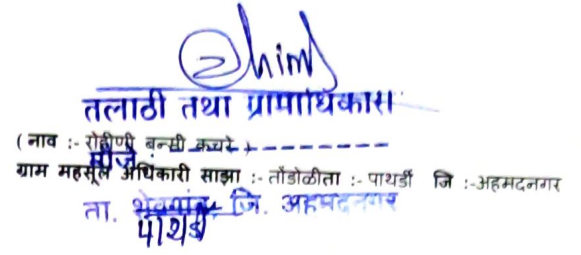 तलाठी तथा प्राधाधिकारी
(नाव :- रोहीणी बन्सी कचरे )------------
मौजे
ग्राम महसूल अधिकारी साझा :- तोंडोळीता :- पाथर्डी जि :-अहमदनगर
ता. शेवगांव, जि. अहमदनगर
पाथर्डी